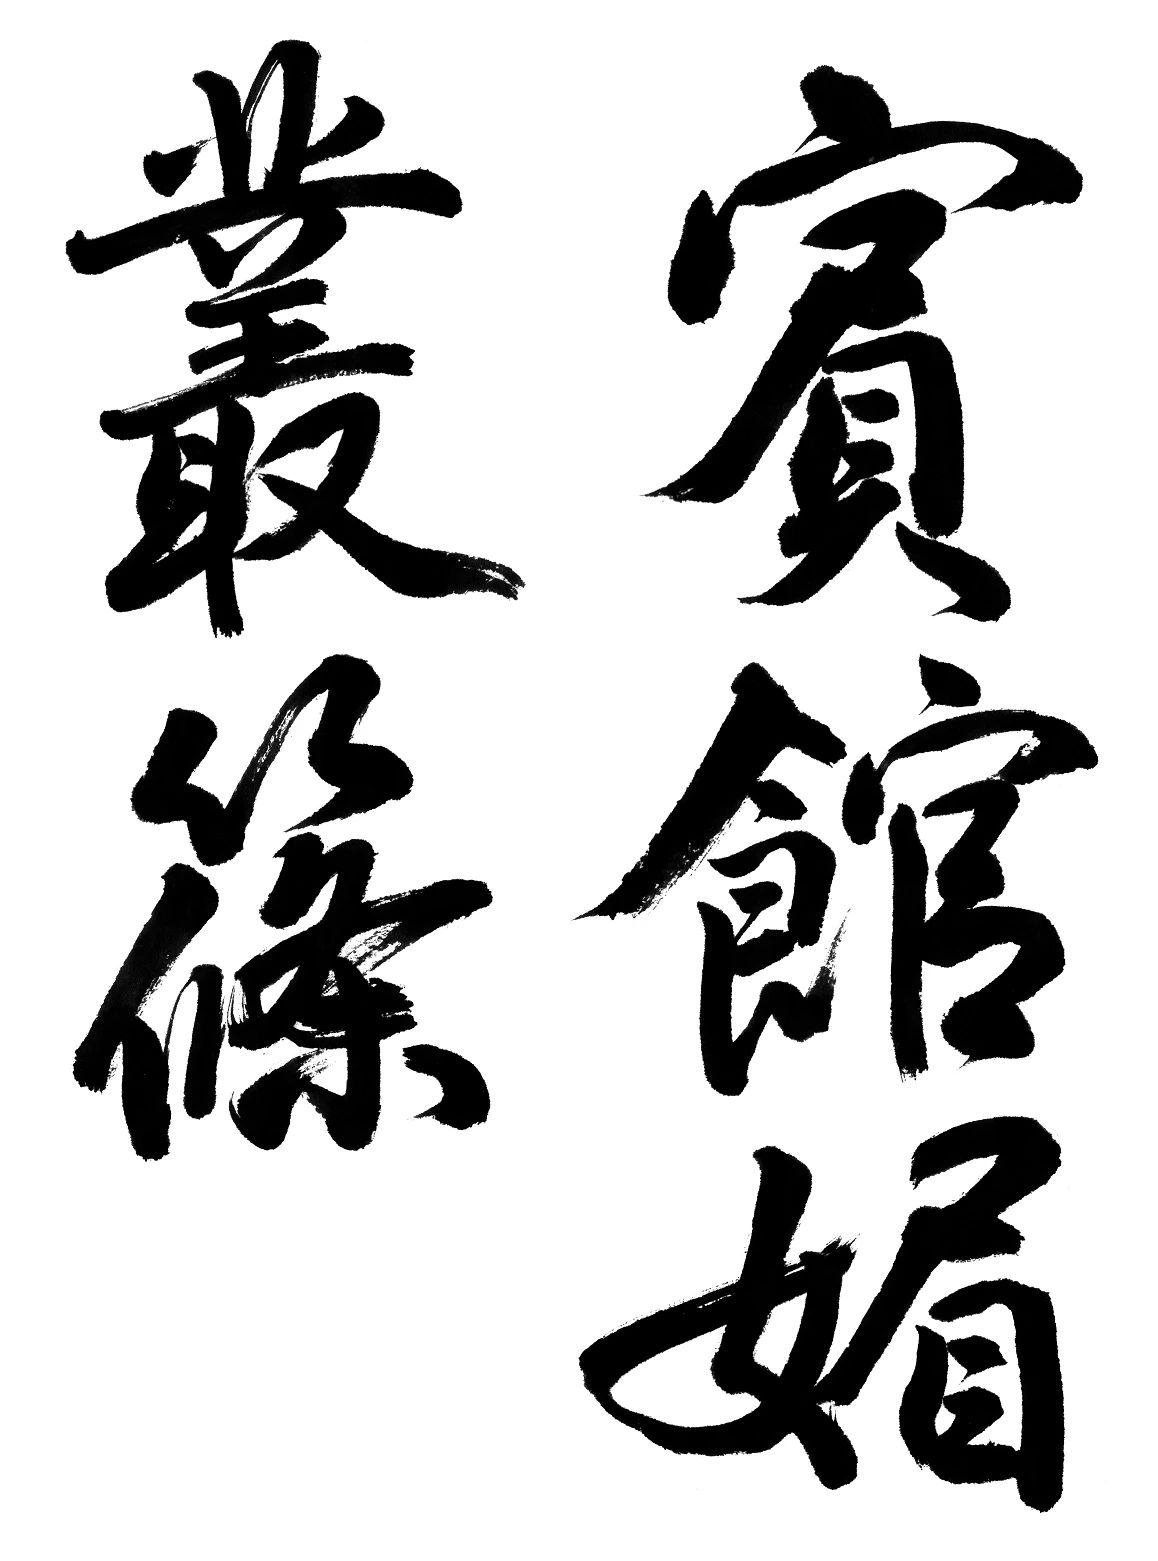 賓館媚
叢篠